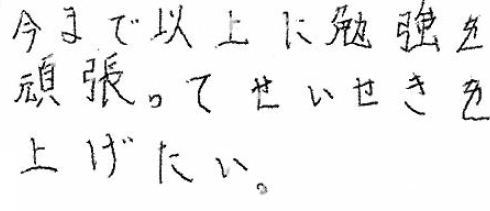 今まで以上に勉強を
頑張ってせいせきを
上げたい。